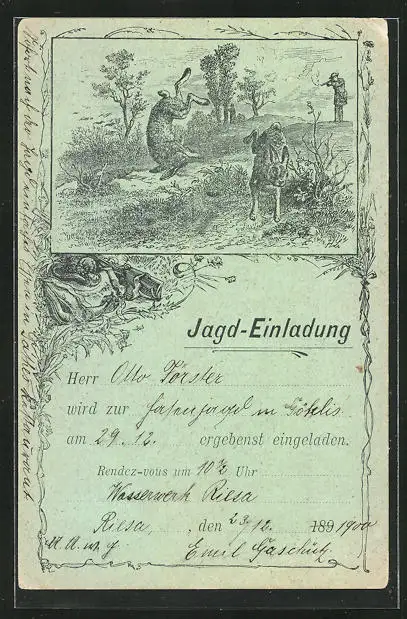 Jagd-Einladung
Herr Otto Förster
wird zur Hasenjagd in Göhlis
am 29. 12. ergebenst eingeladen.
Rendez-vous um 10½ Uhr
Wasserwerk Riesa
Riesa, den 23/12. 189 1900
U. A. w. g.
Emil Gaschütz